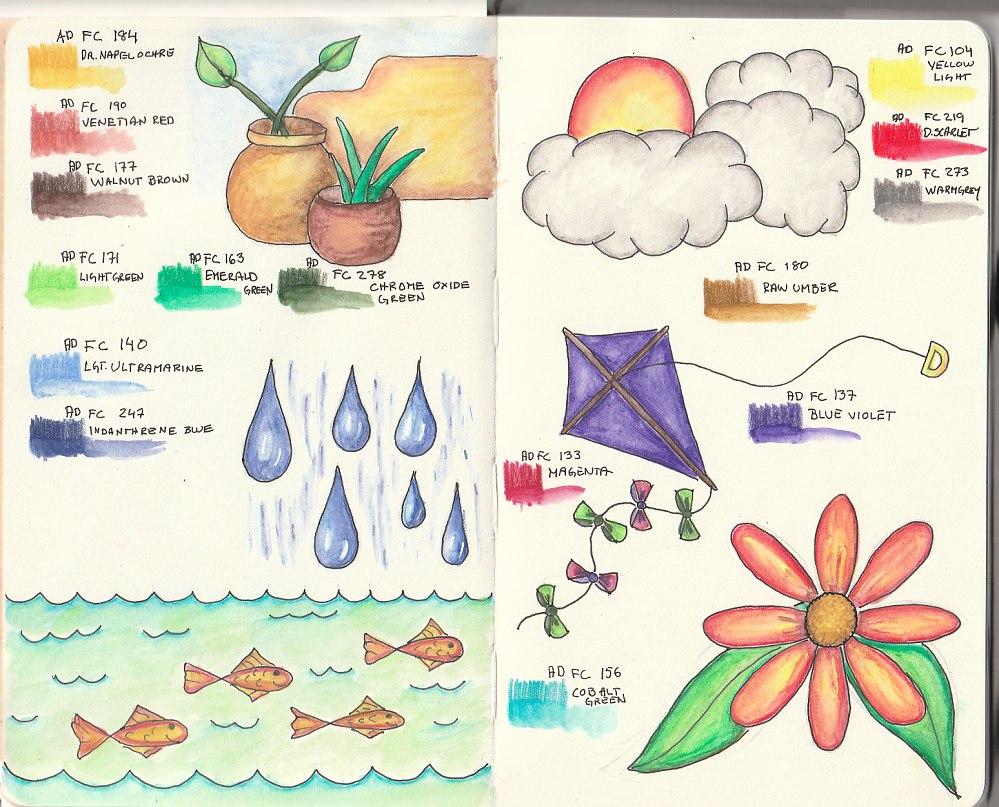 AD FC 184
DR. NAPEL OCHRE
AD FC 190
VENETIAN RED
AD FC 177
WALNUT BROWN
AD FC 171
LIGHT GREEN
AD FC 163
EMERALD
GREEN
AD
FC 278
CHROME OXIDE
GREEN
AD FC 140
LGT. ULTRAMARINE
AD FC 247
INDANTHRENE BLUE
AD FC 104
YELLOW
LIGHT
AD FC 219
D. SCARLET
AD FC 273
WARMGREY
AD FC 180
RAW UMBER
AD FC 137
BLUE VIOLET
AD FC 133
MAGENTA
AD FC 156
COBALT
GREEN